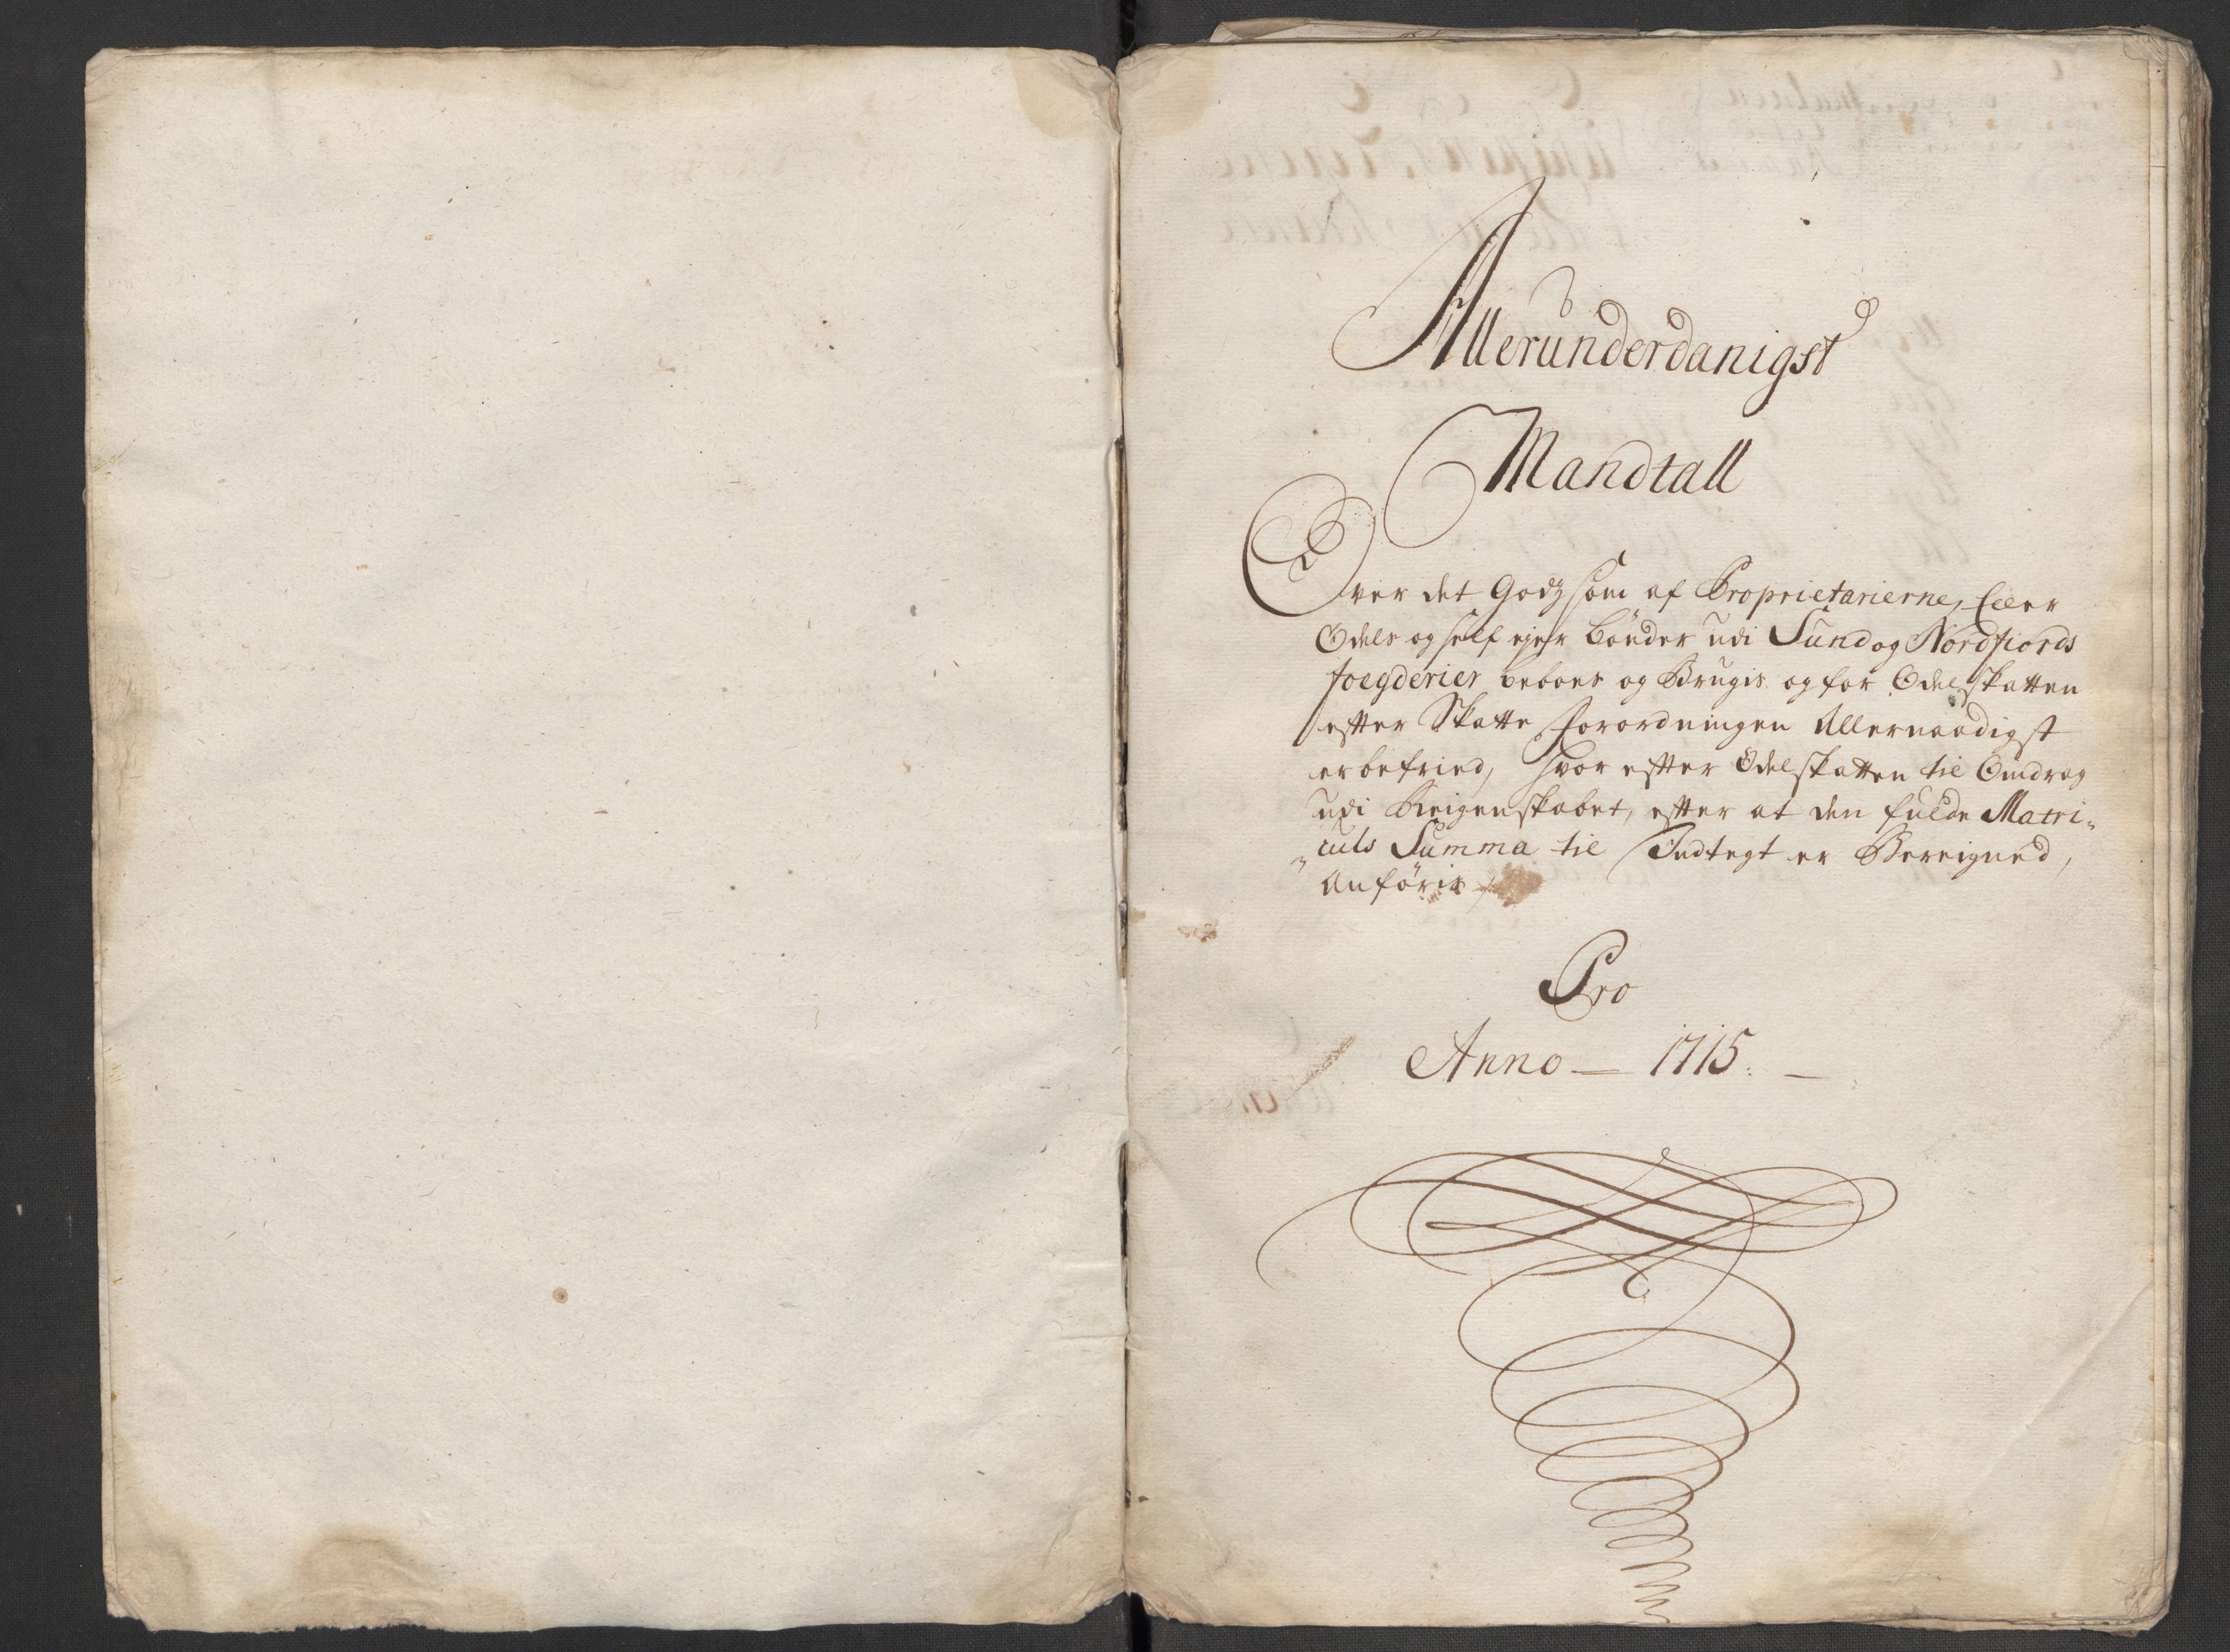 Allerunderdanigst
Mandtall
Over det Godz som af Proprietarierne, Eller
Odels og self ejer bönder udi Sund og Nordfiords
foegderier beboes og Brugis og for Odelskatten
efter Skatte Forordningen Allernaadigst
er befried, hvor efter Odelskatten til Omdrag
udi Reigenskabet, efter at den fulde Matri-
culs Summa til Indtegt er Bereigned,
Anföris
Pro
Anno - 1715. -